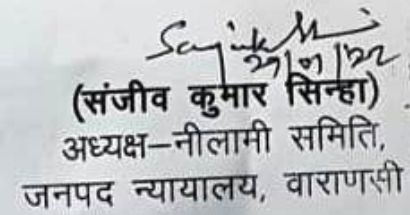 27/01/22
(संजीव कुमार सिन्हा)
अध्यक्ष–नीलामी समिति,
जनपद न्यायालय, वाराणसी